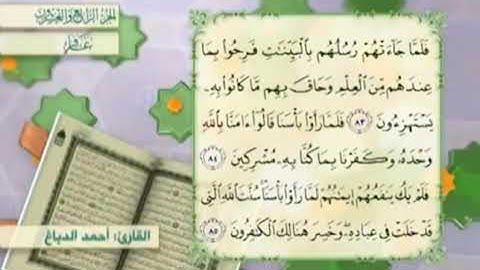 الجزء الرابع والعشرون
غافر
فَلَمَّا جَآءَتْهُمْ رُسُلُهُم بِٱلْبَيِّنَٰتِ فَرِحُوا۟ بِمَا
عِندَهُم مِّنَ ٱلْعِلْمِ وَحَاقَ بِهِم مَّا كَانُوا۟ بِهِۦ
يَسْتَهْزِءُونَ ٨٣ فَلَمَّا رَأَوْا۟ بَأْسَنَا قَالُوٓا۟ ءَامَنَّا بِٱللَّهِ
وَحْدَهُۥ وَكَفَرْنَا بِمَا كُنَّا بِهِۦ مُشْرِكِينَ ٨٤
فَلَمْ يَكُ يَنفَعُهُمْ إِيمَٰنُهُمْ لَمَّا رَأَوْا۟ بَأْسَنَا سُنَّتَ ٱللَّهِ ٱلَّتِى
قَدْ خَلَتْ فِى عِبَادِهِۦ وَخَسِرَ هُنَالِكَ ٱلْكَٰفِرُونَ ٨٥
القارئ: أحمد الدباغ